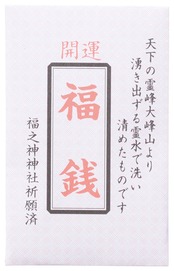 開運
天下の霊峰大峰山より
湧き出ずる霊水で洗い
清めたものです
福銭
福之神神社祈願済